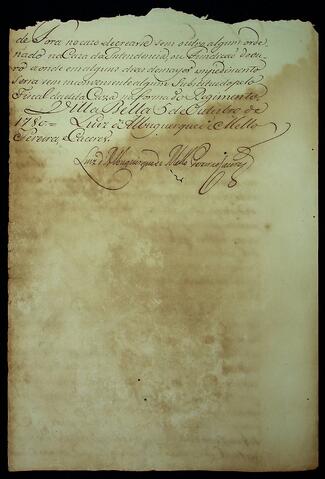 de Fora no cazo de crearse sem outro algum orde
nado na Caza da Intendencia, ou Fundicaõ do ou
ro aonde em alguns dias de mayor impedimento
Seria sem inconveniente algum Substituido pelo
Fiscal da dita Caza na forma do Regimento.
Villa Bella 5 de Outubro de
1780 = Luiz d'Albuquerque de Mello
Pereira, e Caceres.
Luiz d'Albuquerque de Mello Pereira e Caceres